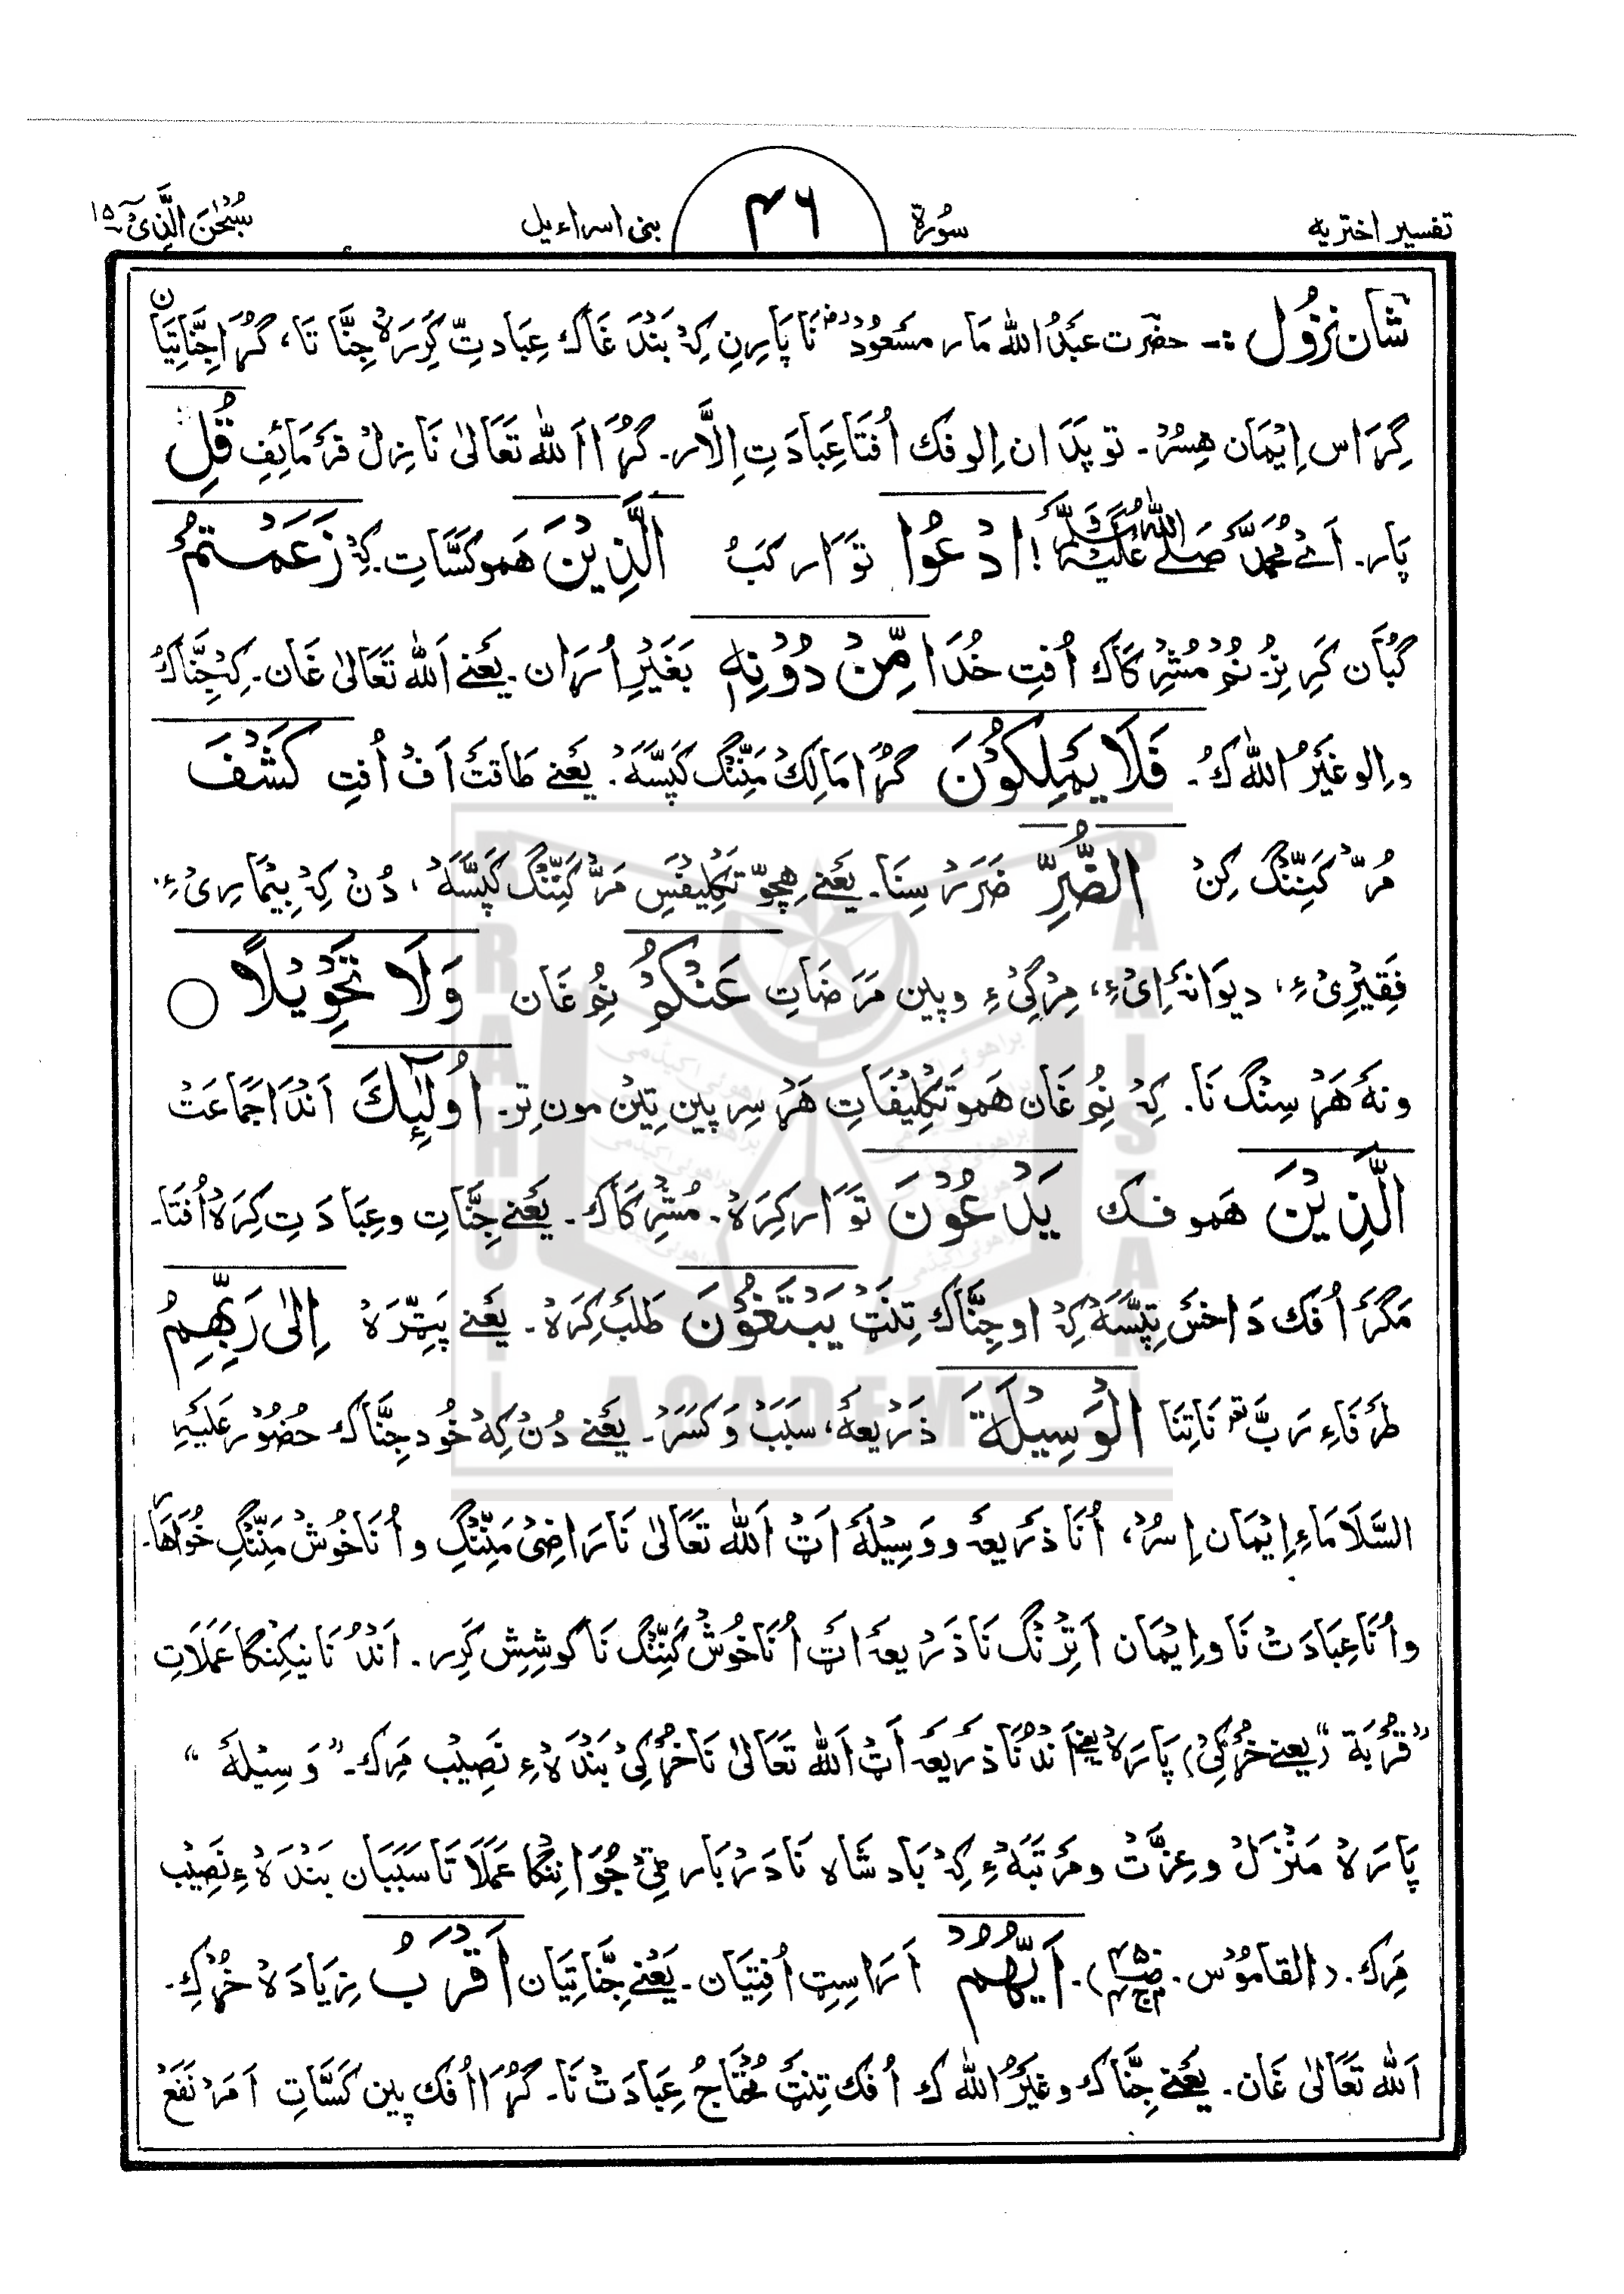 تفسیر اختریه سُورة ۴۶ بنی اسراءیل سُبْحٰنَ الَّذِیْٓ ۱۵
شانِ نزُول :- حضرت عَبدُ الله مَار مسَعُودؓ نَا پَارِنِ کِہْ بَنْدَغَاک عِبَادتِّ کَرِرَہْ جِنَّا تَا، گُڑَا جِنَّاتِیَان
گِرَاس اِیْمَان هِسُرْ۔ تو پَدَان اِلوفک اُفتَا عِبَادَتِ اِلَّار۔ گُڑَا اَللّٰه تَعَالیٰ نَازِلْ فَرْمَائِفِ قُلِ
پَار۔ اَےْ مُحَمَّدْ صَلَّی اللّٰهُ عَلَیْہِ وَسَلَّمَ! ادْعُوا تَوَار کَبُ الَّذِیْنَ هَمو کَسَّاتِ۔ کِہْ زَعَمْتُمْ
گُبَان کَرِیْزْ نُمْ مُشْرِکَاک اُفتِ خُدَا مِّنْ دُوْنِہٖ بَغَیْرِ اُرَان۔ یَعْنے اَللّٰه تَعَالیٰ غَان۔ کِہْ جِنَّاکْ
وِالو غَیْرُ اللّٰه کُ۔ فَلَا یَمْلِکُوْنَ گُڑَا مَالِکْ مَنِّنْگ کَپَّسَہْ۔ یَعْنے طَاقَتْ اَفْ اُفتِ کَشْفَ
مُرّ کَنِنّگ کِنْ الضُّرِّ ضَرَرْ سِنَا۔ یَعْنے هِچّو تَکْلِیفَسِ مَرّ کَنِنّگ کَپَّسَہْ، دُنْ کِہْ بِیْمَارِیْ ءِ،
فَقِیْرِیْ ءِ، دِیوَانَہ اِیْ ءِ، مِرْگِیْ ءِ وپین مَرَضَاتِ عَنْکُمْ نُمْ غَان وَلَا تَحْوِیْلًا ○
ونہَ هَرْسِنْگ نَا۔ کِہْ نُمْ غَان هَمو تَکْلِیْفَاتِ هَرْسِر پین تِیْن مون تِر۔ اُولٰٓئِكَ اَنْدَا جَمَاعَتْ
الَّذِیْنَ هَموفك یَدْعُوْنَ تَوَار کِرَہْ۔ مُشْرِکَاك۔ یَعْنے جِنَّاتِ وعِبَادَتِ کِرَہْ اُفتَا۔
مَگَرْ اُفك دَاخَسْ تِپَّسَہْ کِہْ او جِنَّاك تِنَتْ یَبْتَغُوْنَ طَلَبْ کِرَہْ۔ یَعْنے پَتِرَہْ اِلٰی رَبِّهِمُ
طَرَفَاءِ رَبّ نَاتِنَا الْوَسِیْلَةَ ذَرِیْعہَ، سَبَبْ وَ کَسَرْ۔ یَعْنے دُنْ کِہْ خُود جِنَّاك حُضُوْر عَلَیْہِ
السَّلَامَاءِ اِیْمَان اِسُرْ، اُنَا ذَرِیعہ ووَسِیْلہَ اَتْ اَللّٰه تَعَالیٰ نَا رَاضِیْ مَنِّنْگ و اُنَا خُوْش مَنِّنْگ خُوَاهَار۔
واُنَا عِبَادَتْ نَا وِ اِیْمَان اَتِّرْنْگ نَا ذَرِیعہ اَتْ اُنَا خُوْش کَنِنّگ نَا کوشِشِ کَرِر۔ اَنْدُنَا نیکِنْگا عَمَلَاتِ
"قُرْبَة" (یعنے خُرْکِی) پَارَہْ یعنے اَنْدُنَا ذَرِیعہ اَتْ اَللّٰه تَعَالیٰ نَا خُرْکِیْ بَنْدَہْ ءِ نَصِیْب مَرِك۔ "وَسِیْلہَ"
پَارَہْ مَنْزِلْ وعِزَّتْ ومَرْتَبَہْ ءِ کِہْ بَادشَاہ نَا دَرْبَار ٹِیْ جُوَانِنْگا عَمَلَاتَا سَبَبَان بَنْدَہْ ءِ نَصِیْب
مَرِك۔ (القامُوْس۔ ص۴۵ ج۴)۔ اَیُّهُمْ اَرَاسِتِ اُفتِیَان۔ یَعْنے جِنَّاتِیَان اَقْرَبُ زِیَادَہْ خُرْكِ۔
اَللّٰه تَعَالیٰ غَان۔ یَعْنے جِنَّاك وغَیْرُ اللّٰه كُ اُفك تِنَتْ مُحْتَاجْ عِبَادَتْ نَا۔ گُڑَا اُفك پین کَسَّاتِ اَمَرْ نَفَعْ
BRAHUI ACADEMY PAKISTAN
براهوئی اکیڈمی